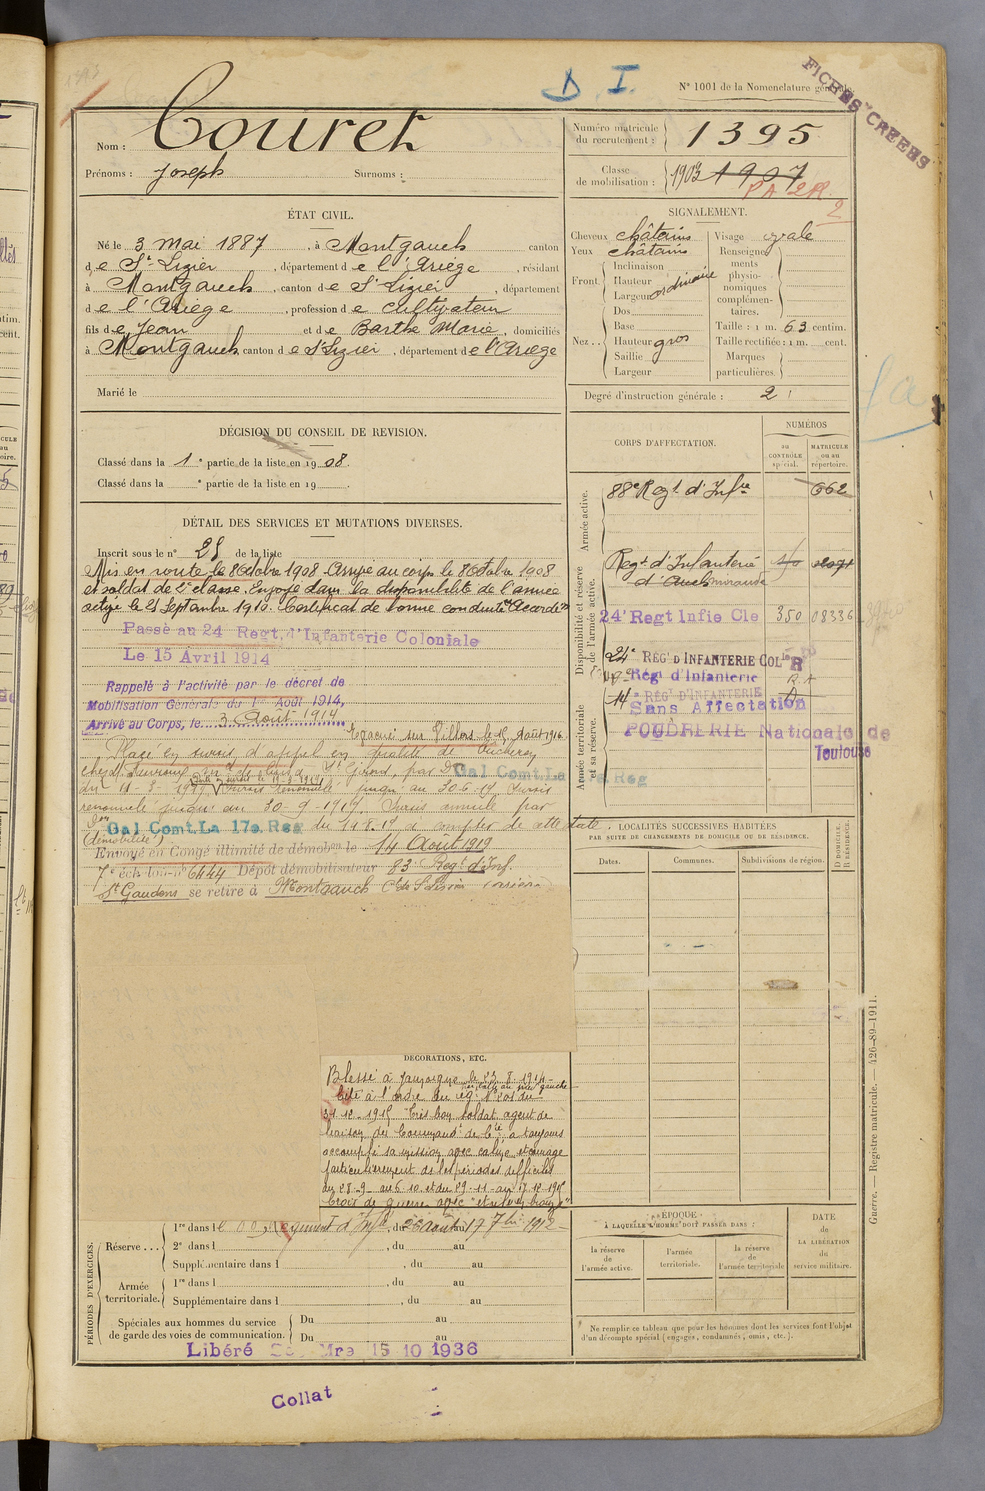 D. I.
N° 1001 de la Nomenclature générale.
FICHES CREEES
Nom : Couret
Prénoms : Joseph Surnoms :
Numéro matricule du recrutement : 1395
Classe de mobilisation : 1903 1907
PA 2R
2
ÉTAT CIVIL.
Né le 3 mai 1887, à Montgauch canton
de St Lizier, département de l'Ariège, résidant
à Montgauch, canton de St Lizier, département
de l'Ariège, profession de cultivateur
fils de Jean et de Barthe Marie, domiciliés
à Montgauch, canton de St Lizier, département de l'Ariège
Marié le
SIGNALEMENT.
Cheveux châtains
Yeux châtains
Front Inclinaison
Hauteur
Largeur
ordinaire
Nez .. Dos
Base
Hauteur gros
Saillie
Largeur
Visage ovale
Renseignements physionomiques complémentaires.
Taille : 1 m. 63 centim.
Taille rectifiée : 1 m. cent.
Marques particulières.
Degré d'instruction générale : 2
DÉCISION DU CONSEIL DE REVISION.
Classé dans la 1e partie de la liste en 1908.
Classé dans la e partie de la liste en 19 .
DÉTAIL DES SERVICES ET MUTATIONS DIVERSES.
Inscrit sous le n° 28 de la liste
Mis en route le 8 Octobre 1908. Arrivé au corps le 8 Octobre 1908
et soldat de 2e classe. Envoyé dans la disponibilité de l'armée
active le 25 Septembre 1910. Certificat de bonne conduite "Accordé"
Passé au 24 Regt. d'Infanterie Coloniale
Le 15 Avril 1914
Rappelé à l'activité par le décret de
Mobilisation Générale du 1er Août 1914,
Arrivé au Corps, le 3 Août 1914
Evacué sur Villers le 12 Août 1916
Placé en sursis d'appel en qualité de
St Girons, par Don Gal Comt. La 17e Reg
du 11-3-1919 Sursis renouvelé jusqu'au 30-6-19 Sursis
renouvelé jusqu'au 30-9-1919 Sursis annulé par
Don Gal Comt. La 17e Reg du 14.8.19 à compter de cette date.
(démobilité)
Envoyé en Congé illimité de démobon le 14 Août 1919
7e échelon n° 6444 Dépôt démobilisateur 83e Regt d'Inf.
St Gaudens se retire à Montgauch
CORPS D'AFFECTATION.
NUMÉROS
au CONTRÔLE spécial.
MATRICULE ou au répertoire.
Armée active.
88e Regt d'Infie 662
Disponibilité et réserve de l'armée active.
Regt d'Infanterie
d'Auch mirande
24e Regt Infie Cle 350 08336
24e RÉGt D'INFANTERIE COLle R
Rég d'Infanterie
14e RÉGt D'INFANTERIE
Sans Affectation
POUDRERIE Nationale de
Toulouse
Armée territoriale et sa réserve.
LOCALITÉS SUCCESSIVES HABITÉES
PAR SUITE DE CHANGEMENTS DE DOMICILE OU DE RÉSIDENCE.
Dates. Communes. Subdivisions de région.
D DOMICILE. R RÉSIDENCE.
DÉCORATIONS, ETC.
Blessé à Jaumoigne le 23.8.1914
Cité à l'ordre du régt N° 201 du
31.12.1915 "Très bon soldat agent de
liaison du Command' de Cie a toujours
accompli sa mission avec calme et courage
particulièrement dans les périodes difficiles
du 28-9 au 6.10 et du 29-11 au 17.12.1915
Croix de guerre avec "étoile de bronze"
PÉRIODES D'EXERCICES.
Réserve ... 1re dans l
, du 26 août au 17 7bre 1912
2e dans l , du au
Supplémentaire dans l , du au
Armée territoriale. 1re dans l , du au
Supplémentaire dans l , du au
Spéciales aux hommes du service de garde des voies de communication. Du au
Du au
Libéré Mre 15 10 1936
ÉPOQUE
À LAQUELLE L'HOMME DOIT PASSER DANS :
la réserve de l'armée active.
l'armée territoriale.
la réserve de l'armée territoriale
DATE de LA LIBÉRATION du service militaire.
Ne remplir ce tableau que pour les hommes dont les services font l'objet
d'un décompte spécial (engagés, condamnés, omis, etc.).
Guerre. — Registre matricule. — 426-89-1911.
Collat